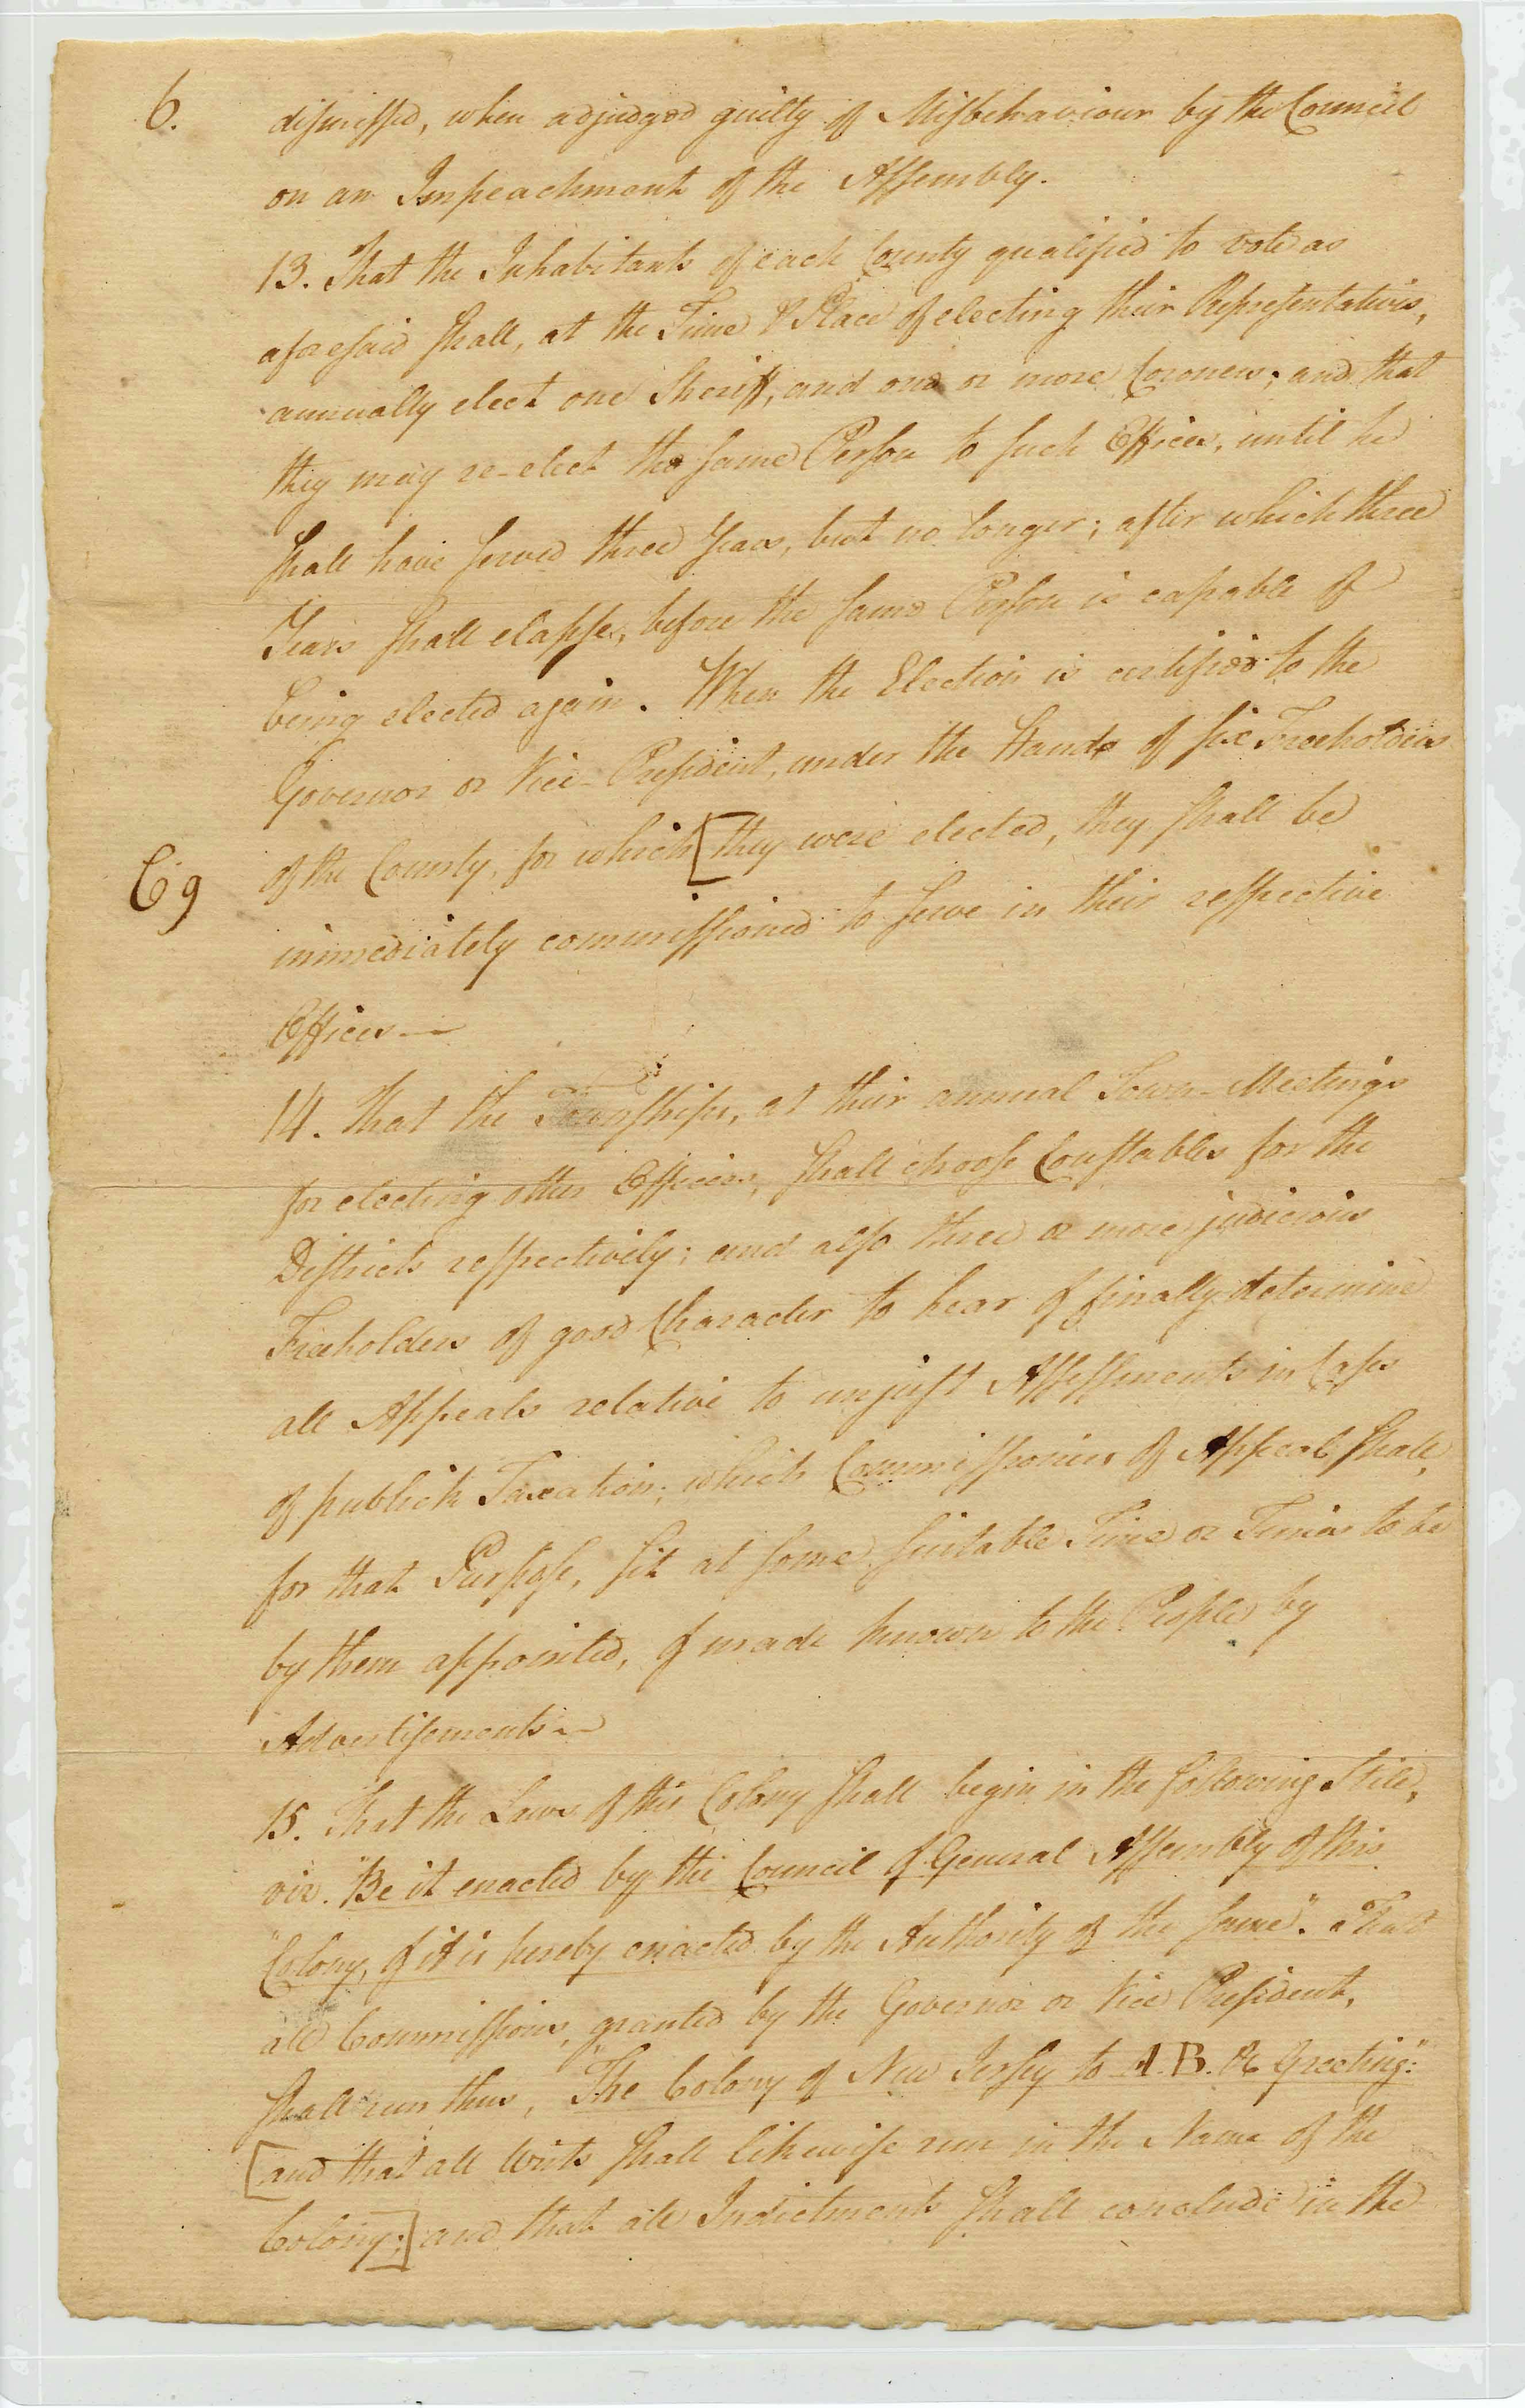 6.
dismissed, when adjudged guilty of Misbehaviour by the Council
on an Impeachment of the Assembly.
13. That the Inhabitants of each County qualified to vote as
aforesaid shall, at the Time & Place of electing their Representatives,
annually elect one Sheriff, and one or more Coroners; and that
they may re-elect the same Person to such Offices, until he
shall have served three Years, but no longer; after which three
Years shall elapse, before the same Person is capable of
being elected again. When the Election is certified to the
Governor or Vice-President, under the Hands of six Freeholders
of the County, for which [they were elected, they shall be
C 9
immediately commissioned to serve in their respective
Offices—
14. That the Townships, at their annual Town-Meetings
for electing other Officers, shall choose Constables for the
Districts respectively; and also three or more judicious
Freeholders of good Character to hear & finally determine
all Appeals relative to unjust Assessments in Cases
of publick Taxation; which Commissioners of Appeal shall,
for that Purpose, sit at some suitable Time or Times to be
by them appointed, & made known to the People by
Advertisements—
15. That the Laws of this Colony shall begin in the following Stile,
viz. "Be it enacted by the Council & General Assembly of this
"Colony, & it is hereby enacted by the Authority of the same". That
all Commissions, granted by the Governor or Vice President,
shall run thus, "The Colony of New Jersey to A. B. &c Greeting":
[and that all Writs shall likewise run in the Name of the
Colony;] and that all Indictments shall conclude in the